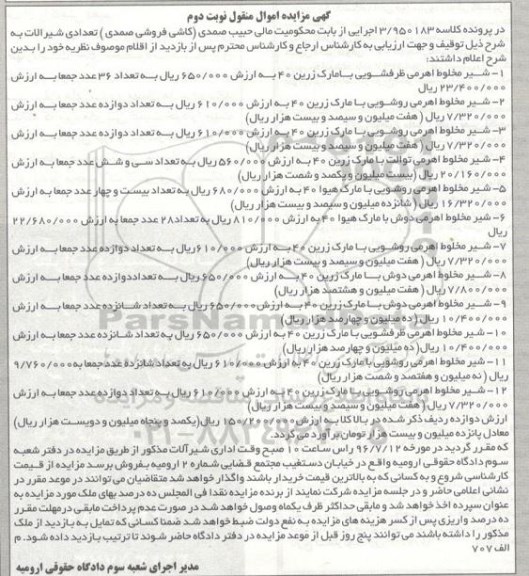 آگهی مزایده اموال منقول نوبت دوم
در پرونده کلاسه ۳/۹۵۰۱۸۳ اجرایی از بابت محکومیت مالی حبیب صمدی (کاشی فروشی صمدی) تعدادی شیرآلات به
شرح ذیل توقیف و جهت ارزیابی به کارشناس ارجاع و کارشناس محترم پس از بازدید از اقلام موصوف نظریه خود را بدین
شرح اعلام داشتند:
۱- شیر مخلوط اهرمی ظرفشویی با مارک زرین ۴۰ به ارزش ۶۵۰/۰۰۰ ریال به تعداد ۳۶ عدد جمعا به ارزش
۲۳/۴۰۰/۰۰۰ ریال
۲- شیر مخلوط اهرمی روشویی با مارک زرین ۴۰ به ارزش ۶۱۰/۰۰۰ ریال به تعداد دوازده عدد جمعا به ارزش
۷/۳۲۰/۰۰۰ ریال ( هفت میلیون و سیصد و بیست هزار ریال)
۳- شیر مخلوط اهرمی روشویی با مارک زرین ۴۰ به ارزش ۶۱۰/۰۰۰ ریال به تعداد دوازده عدد جمعا به ارزش
۷/۳۲۰/۰۰۰ ریال ( هفت میلیون و سیصد و بیست هزار ریال)
۴- شیر مخلوط اهرمی توالت با مارک زرین ۴۰ به ارزش ۵۶۰/۰۰۰ ریال به تعداد سی و شش عدد جمعا به ارزش
۲۰/۱۶۰/۰۰۰ ریال (بیست میلیون و یکصد و شصت هزار ریال)
۵- شیر مخلوط اهرمی روشویی با مارک هیوا ۴۰ به ارزش ۶۸۰/۰۰۰ ریال به تعداد بیست و چهار عدد جمعا به ارزش
۱۶/۳۲۰/۰۰۰ ریال (شانزده میلیون و سیصد و بیست هزار ریال)
۶- شیر مخلوط اهرمی دوش با مارک هیوا ۴۰ به ارزش ۸۱۰/۰۰۰ ریال به تعداد ۲۸ عدد جمعا به ارزش ۲۲/۶۸۰/۰۰۰
ریال
۷- شیر مخلوط اهرمی روشویی با مارک زرین ۴۰ به ارزش ۶۱۰/۰۰۰ ریال به تعداد دوازده عدد جمعا به ارزش
۷/۳۲۰/۰۰۰ ریال ( هفت میلیون و سیصد و بیست هزار ریال)
۸- شیر مخلوط اهرمی دوش با مارک زرین ۴۰ به ارزش ۶۵۰/۰۰۰ ریال به تعداد دوازده عدد جمعا به ارزش
۷/۸۰۰/۰۰۰ ریال ( هفت میلیون و هشتصد هزار ریال)
۹- شیر مخلوط اهرمی دوش با مارک زرین ۴۰ به ارزش ۶۵۰/۰۰۰ ریال به تعداد شانزده عدد جمعا به ارزش
۱۰/۴۰۰/۰۰۰ ریال (ده میلیون و چهارصد هزار ریال)
۱۰- شیر مخلوط اهرمی ظرفشویی با مارک زرین ۴۰ به ارزش ۶۵۰/۰۰۰ ریال به تعداد شانزده عدد جمعا به ارزش
۱۰/۴۰۰/۰۰۰ ریال (ده میلیون و چهارصد هزار ریال)
۱۱- شیر مخلوط اهرمی روشویی با مارک زرین ۴۰ به ارزش ۶۱۰/۰۰۰ ریال به تعداد شانزده عدد جمعا به ۹/۷۶۰/۰۰۰
ریال ( نه میلیون و هفتصد و شصت هزار ریال)
۱۲- شیر مخلوط اهرمی روشویی با مارک زرین ۴۰ به ارزش ۶۱۰/۰۰۰ ریال به تعداد دوازده عدد جمعا به ارزش
۷/۳۲۰/۰۰۰ ریال ( هفت میلیون و سیصد و بیست هزار ریال)
ارزش دوازده ردیف ذکر شده در بالا کلا به ارزش ۱۵۰/۲۰۰/۰۰۰ ریال (یکصد و پنجاه میلیون و دویست هزار ریال)
معادل پانزده میلیون و بیست هزار تومان برآورد می گردد.
که مقرر گردید در مورخه ۹۶/۷/۱۲ راس ساعت ۱۰ صبح وقت اداری شیرآلات مذکور از طریق مزایده در دفتر شعبه
سوم دادگاه حقوقی ارومیه واقع در خیابان دستغیب مجتمع قضایی شماره ۲ ارومیه بفروش برسد مزایده از قیمت
کارشناسی شروع و به کسانی که به بالاترین قیمت خریدار باشند واگذار خواهد شد متقاضیان می توانند در موعد مقرر در
نشانی اعلامی حاضر و در جلسه مزایده شرکت نمایند از برنده مزایده نقدا فی المجلس ده درصد بهای ملک مورد مزایده به
عنوان سپرده اخذ خواهد شد و مابقی حداکثر ظرف یکماه وصول خواهد شد در صورت عدم پرداخت مابقی در مهلت مقرر
ده درصد واریزی پس از کسر هزینه های مزایده به نفع دولت ضبط خواهد شد ضمنا کسانی که تمایل به بازدید از ملک
مذکور را داشته باشند می توانند پنج روز قبل از موعد مزایده در دفتر دادگاه حاضر شوند تا ترتیب بازدید داده شود. م
الف ۷۰۷
مدیر اجرای شعبه سوم دادگاه حقوقی ارومیه